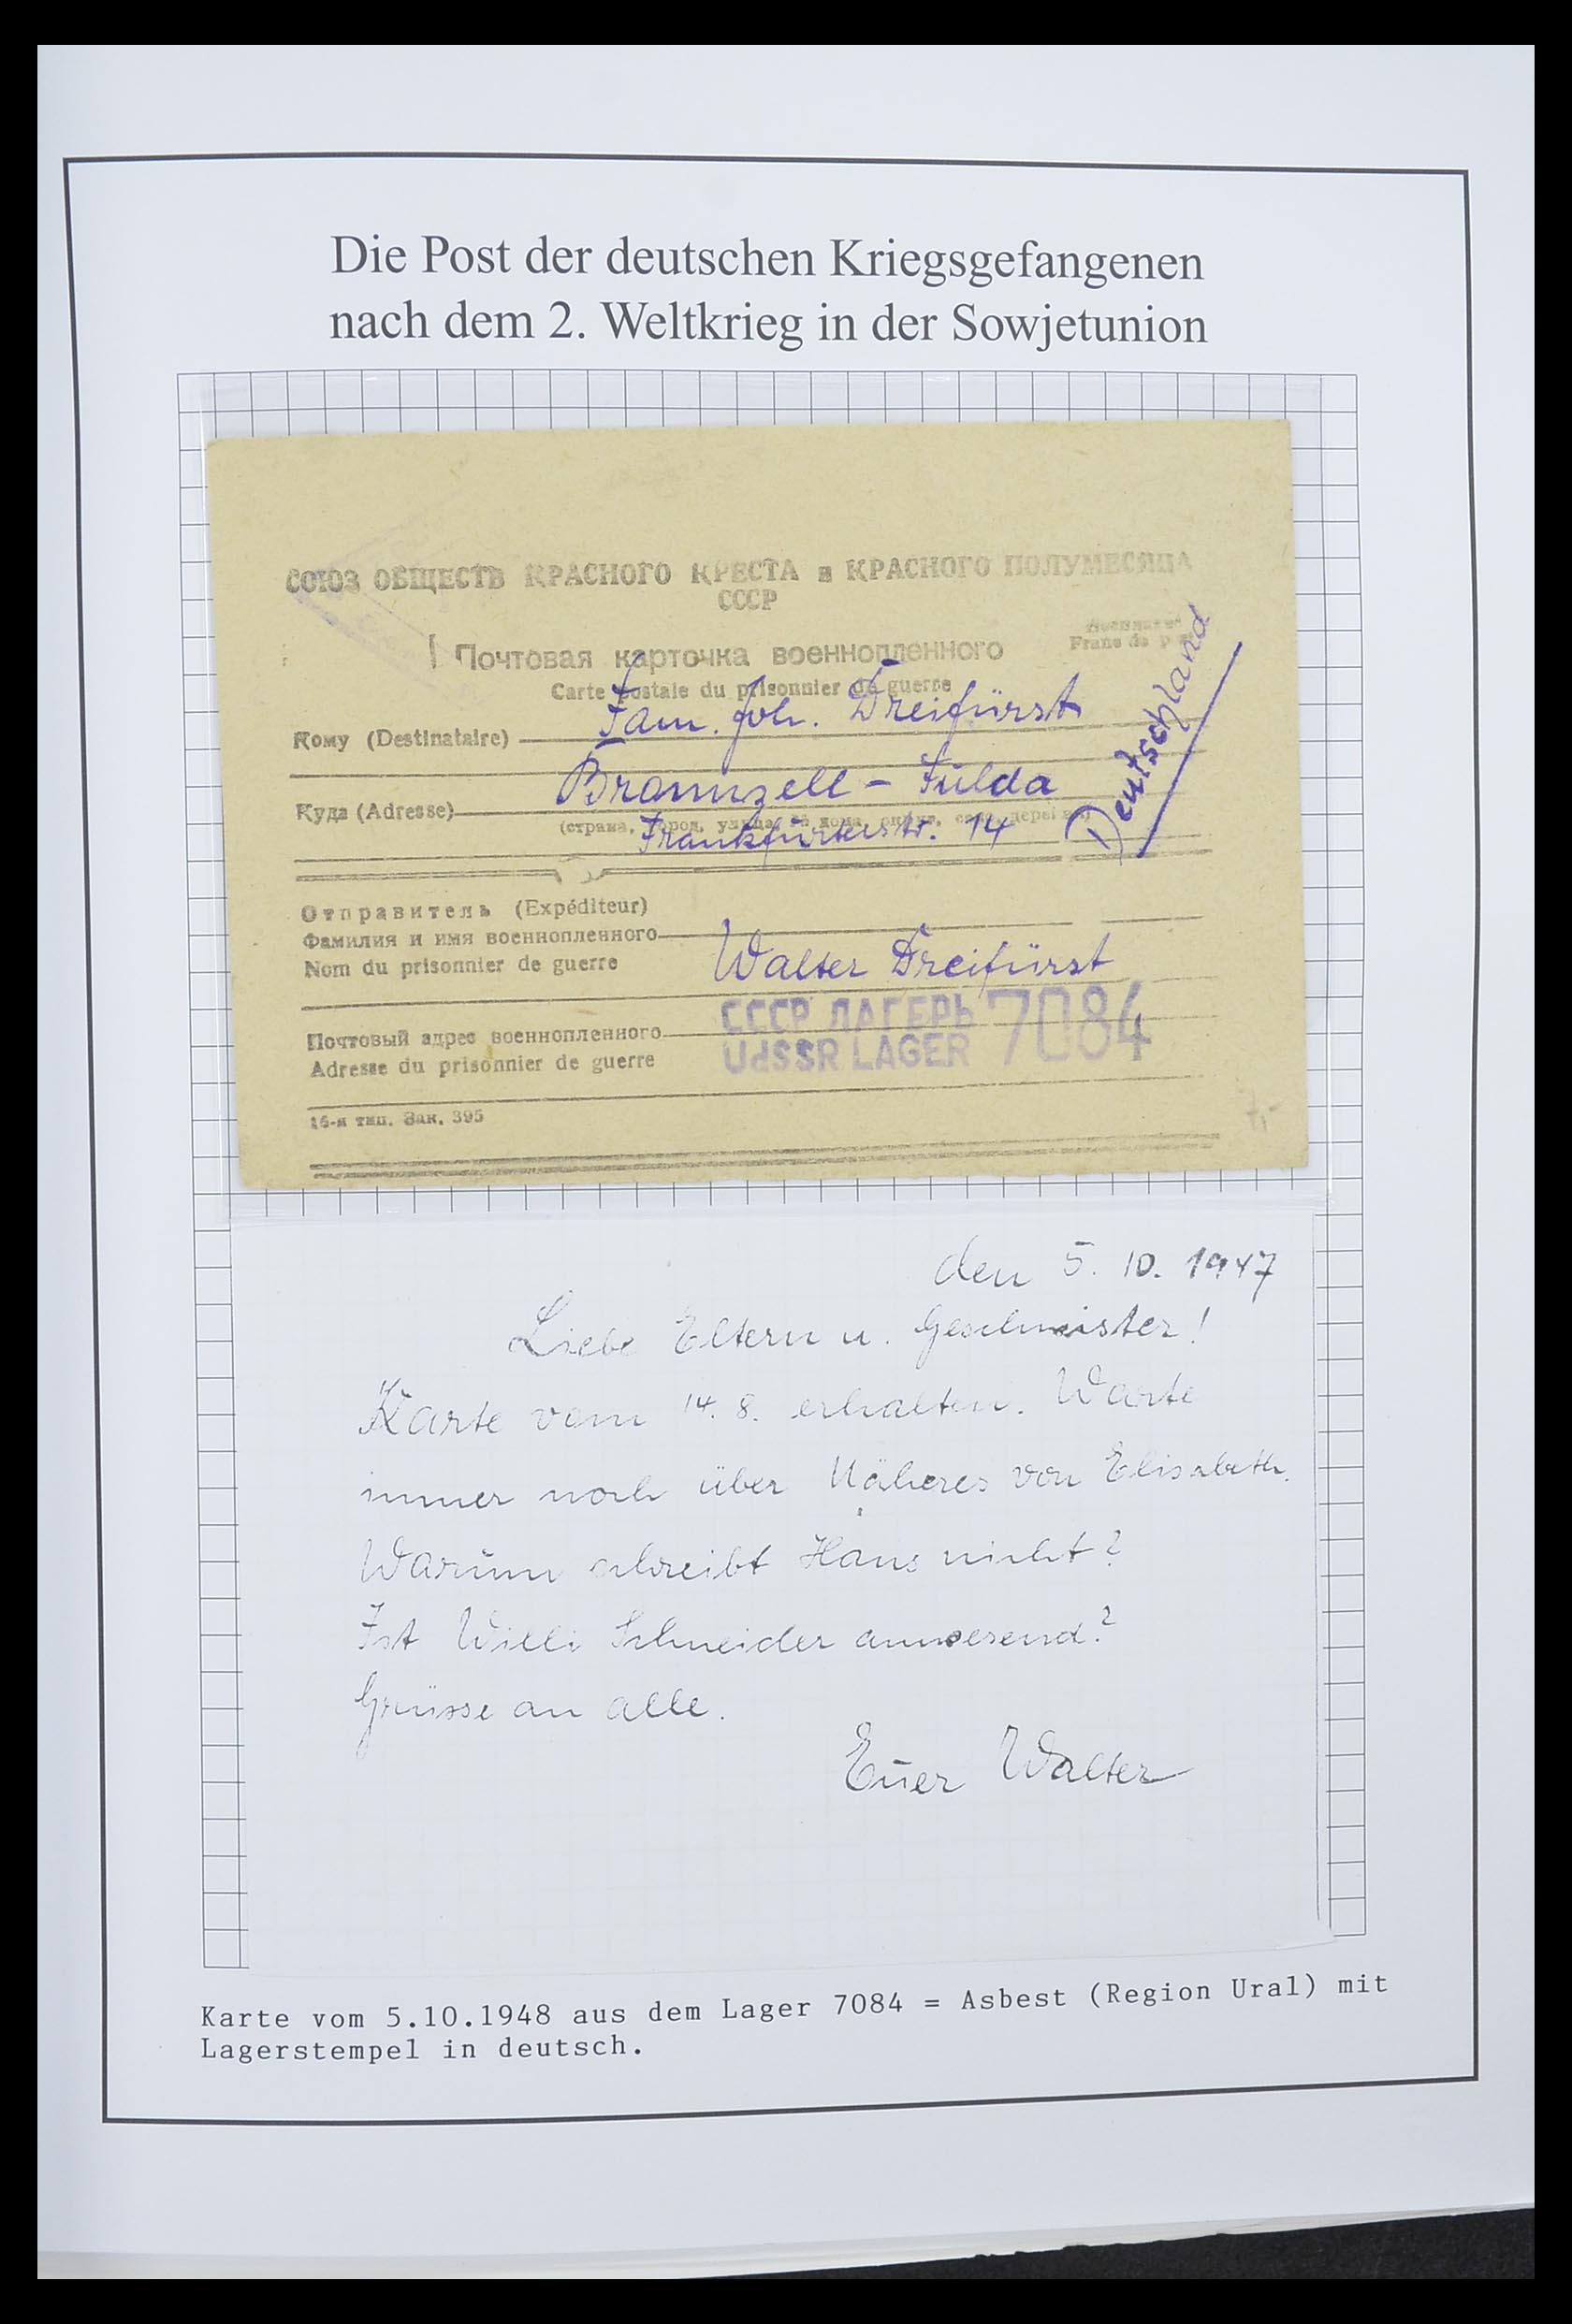 Die Post der deutschen Kriegsgefangenen
nach dem 2. Weltkrieg in der Sowjetunion
СОЮЗ ОБЩЕСТВ КРАСНОГО КРЕСТА и КРАСНОГО ПОЛУМЕСЯЦА
СССР
Почтовая карточка военнопленного
Carte postale du prisonnier de guerre
Franc de
Кому (Destinataire) Fam. Joh. Dreifürst
Куда (Adresse) Bronnzell - Fulda
(страна, город, улица, № дома, округ, село, деревня)
Frankfurterstr. 14
Deutschland
Отправитель (Expéditeur)
Фамилия и имя военнопленного
Nom du prisonnier de guerre Walter Dreifürst
СССР ЛАГЕРЬ 7084
UdSSR LAGER
Почтовый адрес военнопленного
Adresse du prisonnier de guerre
16-я тип. Зак. 395
7,-
den 5. 10. 1947
Liebe Eltern u. Geschwister!
Karte vom 14. 8. erhalten. Warte
immer noch über Näheres von Elisabeth.
Warum schreibt Hans nicht?
Ist Willi Schneider anwesend?
Grüsse an alle.
Euer Walter
Karte vom 5.10.1948 aus dem Lager 7084 = Asbest (Region Ural) mit
Lagerstempel in deutsch.